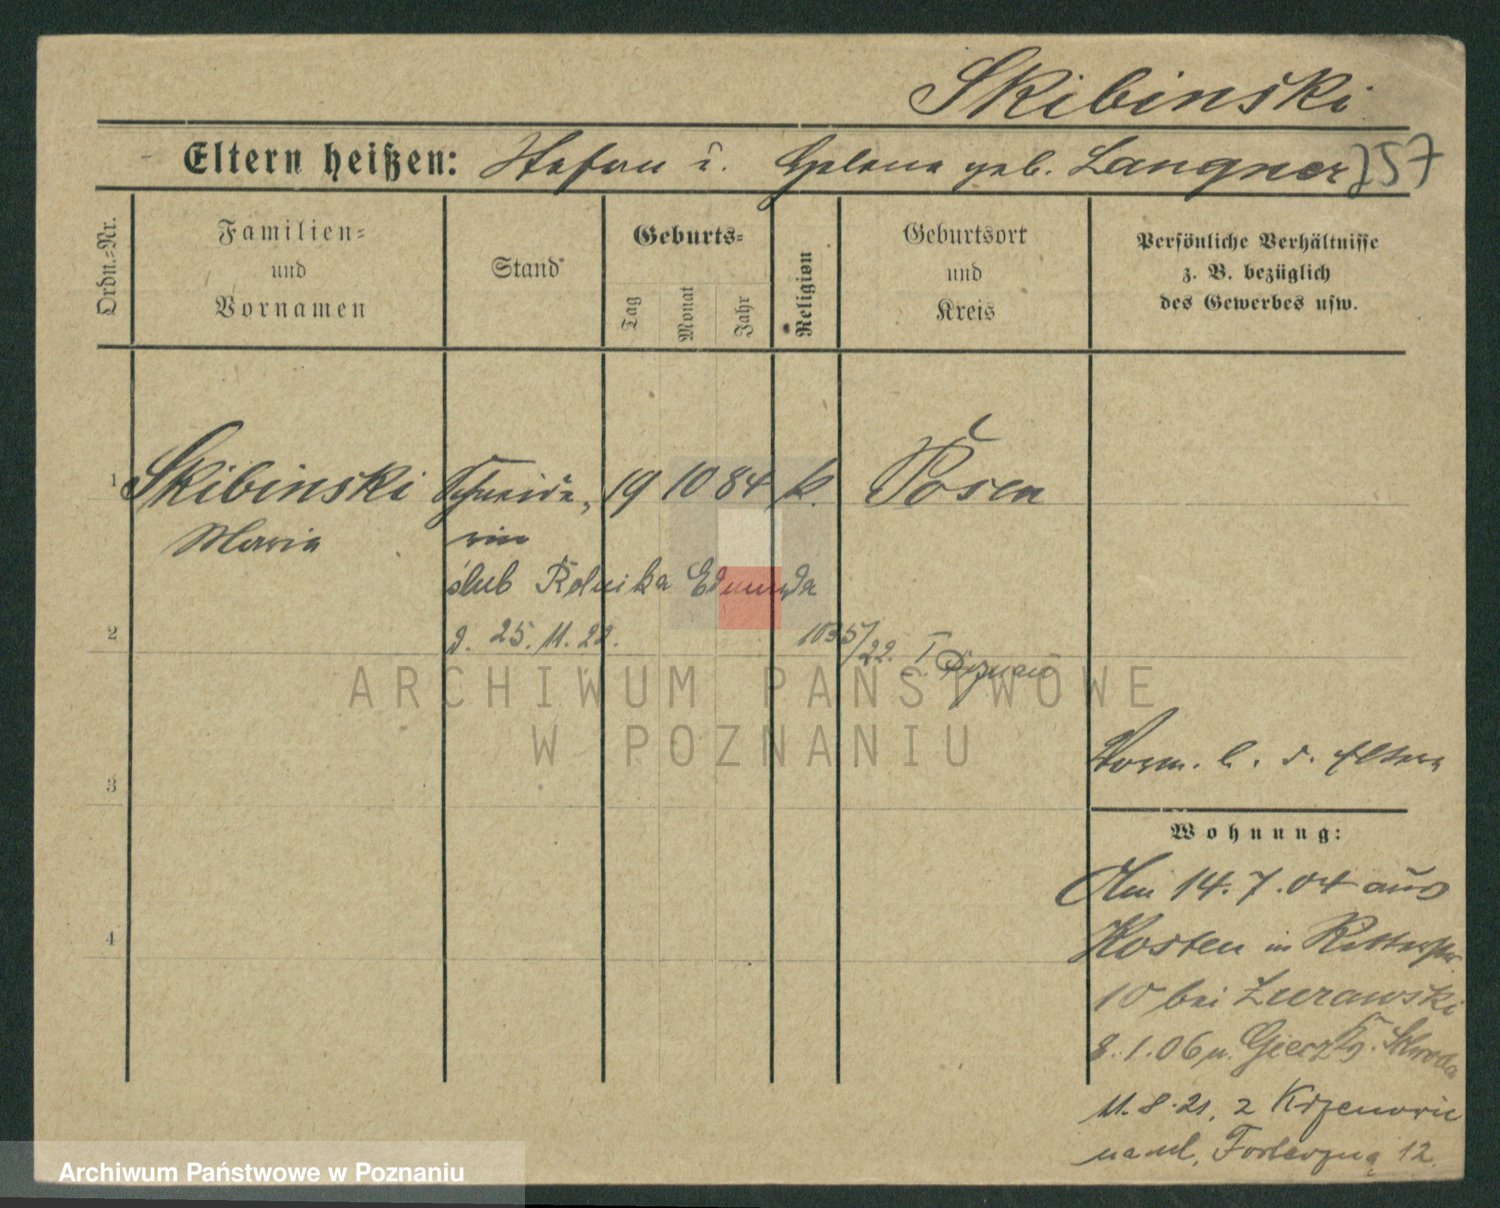 Skibinski
Eltern heißen: Stefan u. Helena geb. Langner
257
Ordn.-Nr.
Familien-
und
Vornamen
Stand
Geburts-
Tag
Monat
Jahr
Religion
Geburtsort
und
Kreis
Persönliche Verhältnisse
z. B. bezüglich
des Gewerbes usw.
1 Skibinski Schneide- 19 10 84 k. Posen
Maria rin
ślub Rolnika Edmunda
d. 25. 11. 22. 1035/22. I Poznań
2
Vorm. b. d. Eltern
3
Wohnung:
Am 14. 7. 04 aus
Kosten in Ritterstr
10 bei Zurawski
8. 1. 06 n. Schroda
11. 8. 21. z
na ul. 12.
4
ARCHIWUM PAŃSTWOWE
W POZNANIU
Archiwum Państwowe w Poznaniu